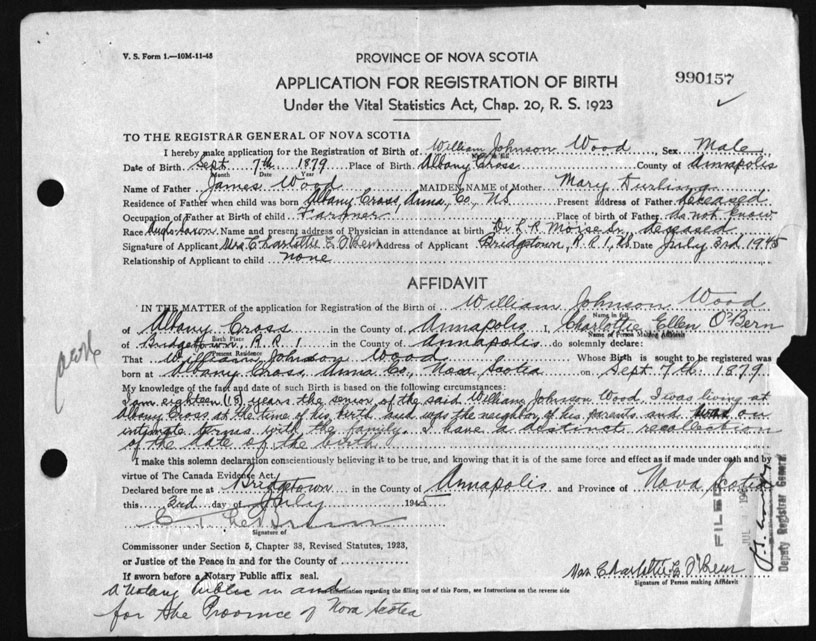 V. S. Form 1.—10M-11-45
PROVINCE OF NOVA SCOTIA
APPLICATION FOR REGISTRATION OF BIRTH
990157
Under the Vital Statistics Act, Chap. 20, R. S. 1923
TO THE REGISTRAR GENERAL OF NOVA SCOTIA
I hereby make application for the Registration of Birth of William Johnson Wood, Sex Male
Date of Birth Sept 7th 1879 Place of Birth Albany Cross County of Annapolis
Month Date Year
Name of Father James Wood MAIDEN NAME of Mother Mary
Residence of Father when child was born Albany Cross, Anna, Co, NS Present address of Father deceased
Occupation of Father at Birth of child Farmer Place of birth of Father do not know
Race Name and present address of Physician in attendance at birth Dr L R Morse Sr, deceased
Signature of Applicant Mrs Charlottie E O'Bern Address of Applicant Bridgetown, R R 1, NS Date July 3rd 1945
Relationship of Applicant to child none
AFFIDAVIT
IN THE MATTER of the application for Registration of the Birth of William Johnson Wood
Name in full
of Albany Cross in the County of Annapolis I, Charlottie Ellen O'Bern
Birth Place Name of Person Making Affidavit
of Bridgetown, R R 1 in the County of Annapolis do solemnly declare:
Present Residence
That William Johnson Wood Whose Birth is sought to be registered was
born at Albany Cross Anna Co, Nova Scotia on Sept 7th 1879.
My knowledge of the fact and date of such Birth is based on the following circumstances:
I am eighteen (18) years the senior of the said William Johnson Wood. I was living at
Albany Cross at the time of his birth and was the neighbor of his parents and was on
intimate terms with the family. I have a distinct recollection
of the date of the birth
I make this solemn declaration conscientiously believing it to be true, and knowing that it is of the same force and effect as if made under oath and by
virtue of The Canada Evidence Act.
Declared before me at Bridgetown in the County of Annapolis and Province of Nova Scotia
this 3rd day of July 1945
Signature of
Commissioner under Section 5, Chapter 38, Revised Statutes, 1923,
or Justice of the Peace in and for the County of
If sworn before a Notary Public affix seal.
Mrs Charlottie E O'Bern
Signature of Person making Affidavit
information regarding the filling out of this Form, see Instructions on the reverse side
a Notary Public in and
for the Province of Nova Scotia
FILED
Deputy Registrar General